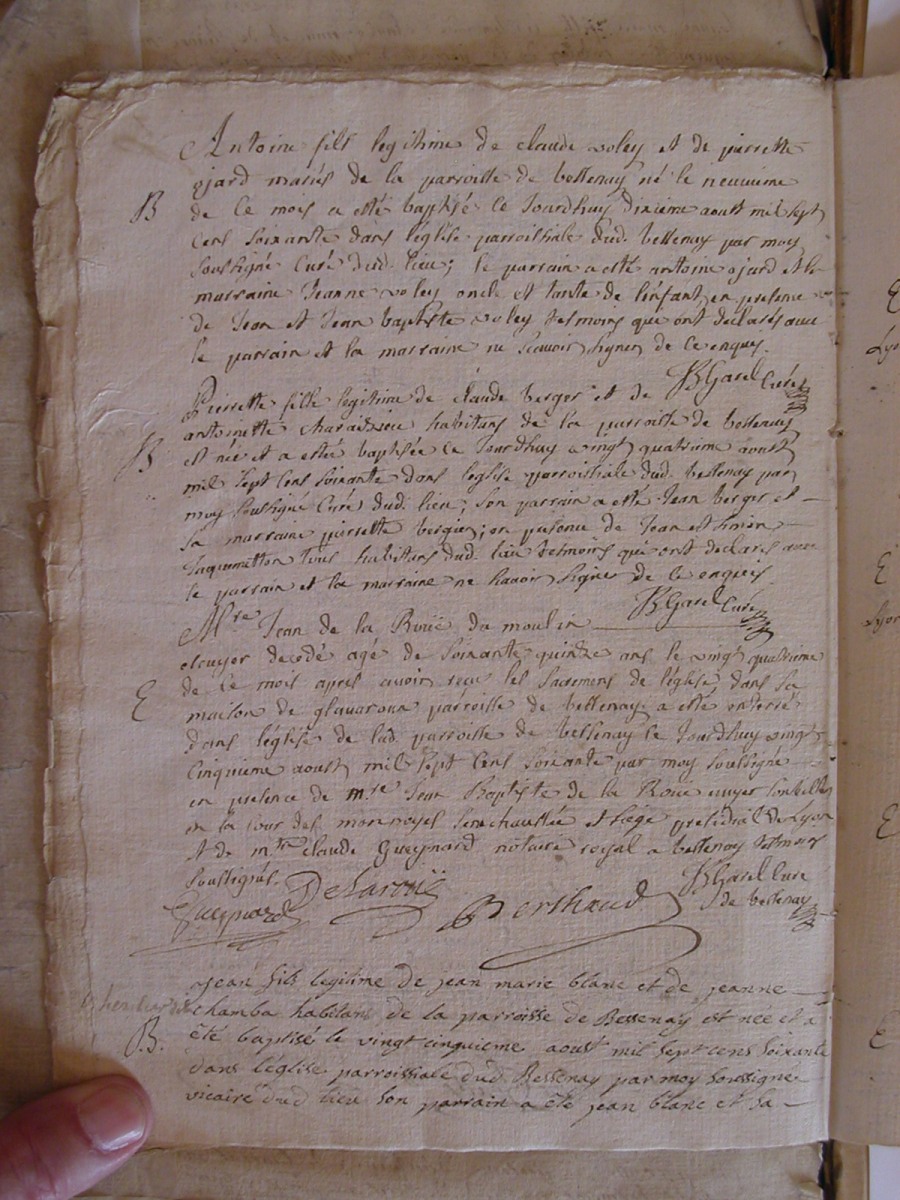 Antoine fils legitime de claude voley et de pierrette
ojard mariés de la parroisse de bessenay né le neuvieme
B
de ce mois a esté baptisé ce Jourdhuy dixieme aoust mil sept
cens soixante dans léglise parroissiale dud. bessenay par moy
soussigné Curé dud. lieu; le parrain a esté antoine ojard et la
marraine Jeanne voley oncle et tante de lenfant, en presence
de Jean et Jean baptiste voley tesmoins qui ont declarés avec
le parrain et la marraine ne scavoir signer de ce enquis.
JBGarel Curé
Pierrette fille legitime de claude berger et de
antoinette habitans de la parroisse de bessenay
B
est née et a estée baptisée ce Jourdhuy vingt quatrieme aoust
mil sept cens soixante dans leglise parroissiale dud. bessenay par
moy soussigné Curé dud. lieu; son parrain a esté Jean berger et
sa marraine pierrette berger; en presence de Jean et simon
Jaquemetton tous habitans dud. lieu tesmoins qui ont declarés avec
le parrain et la marraine ne scavoir signer de ce enqueis.
JBGarel Curé
Mre Jean de la Roüe du moulin
ecuyer decedé agé de soixante quinze ans le vingt quatrieme
E
de ce mois apres avoir reçu les sacremens de léglise, dans sa
maison de glavaroux parroisse de bessenay a esté enterré
dans léglise de lad. parroisse de bessenay le Jourdhuy vingt
cinquieme aoust mil sept cens soixante par moy soussigné
en presence de mre Jean Baptiste de la Roue ecuyer Conseiller
en la cour des monnoyes senechaussée et siege presidial de Lyon
et de mtre claude Gueynard notaire royal a bessenay tesmoins
soussignés.
JBGarel Curé
de bessenay
Gueynard
DeLaroüe
Berthaud
Jean fils legitime de jean marie blanc et de jeanne
chamba habitans de la parroisse de Bessenay est née et a
B.
été baptisé le vingt cinquieme aoust mil sept cens soixante
dans léglise parroissiale dud. Bessenay par moy soussigné
vicaire dud lieu son parrain a été jean blanc et sa
E
Lyo
E
Lyo
E
E